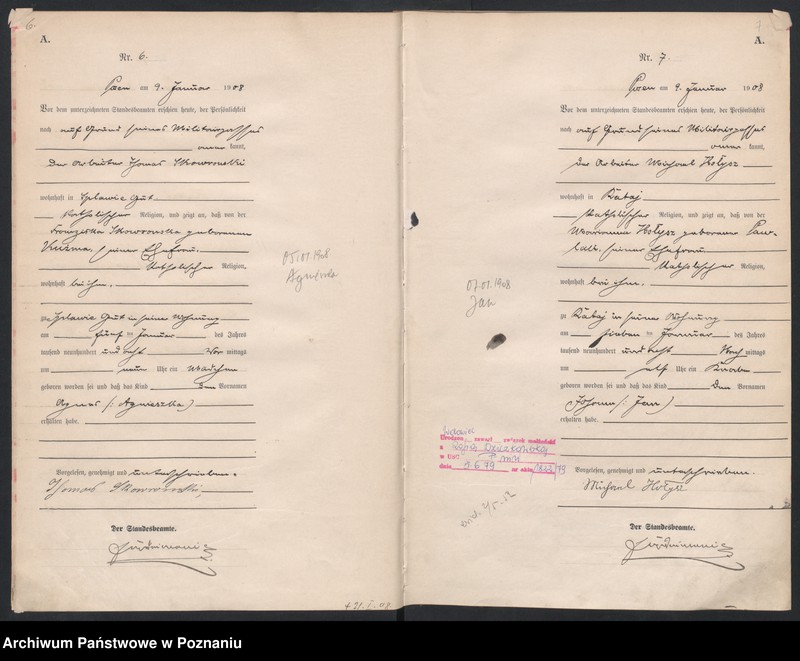 6.
A.
Nr. 6.
Posen am 9. Januar 1908
Vor dem unterzeichneten Standesbeamten erschien heute, der Persönlichkeit
nach auf Grund seines Militärpasses
aner kannt,
der Arbeiter Thomas Skowronski
wohnhaft in Gut
katholischer Religion, und zeigt an, daß von der
Franziska Skowronska geborenen
seiner Ehefrau.
katholischer Religion,
wohnhaft bei ihm.
zu Gut in seiner Wohnung
am fünf ten Januar des Jahres
tausend neunhundert und acht Vor mittags
um neun Uhr ein Mädchen
geboren worden sei und daß das Kind den Vornamen
Agnes (: Agnieszka)
erhalten habe.
Vorgelesen, genehmigt und unterschrieben.
Thomas Skowronski
Der Standesbeamte.
05.01.1908
+ 21. I. 08
7.
A.
Nr. 7.
Posen am 9. Januar 1908
Vor dem unterzeichneten Standesbeamten erschien heute, der Persönlichkeit
nach auf Grund seines Militärpasses
aner kannt,
der Arbeiter Michael Hołysz
wohnhaft in Rataj
katholischer Religion, und zeigt an, daß von der
Marianna Hołysz geborenen Paw-
lak, seiner Ehefrau
katholischer Religion,
wohnhaft bei ihm.
zu Rataj in seiner Wohnung
am sieben ten Januar des Jahres
tausend neunhundert und acht Nach mittags
um elf Uhr ein Knabe
geboren worden sei und daß das Kind den Vornamen
Johann (: Jan)
erhalten habe.
Vorgelesen, genehmigt und unterschrieben.
Michael Hołysz
Der Standesbeamte.
07.01.1908
Jan
dnia 9.6 79 nr aktu 79
Archiwum Państwowe w Poznaniu